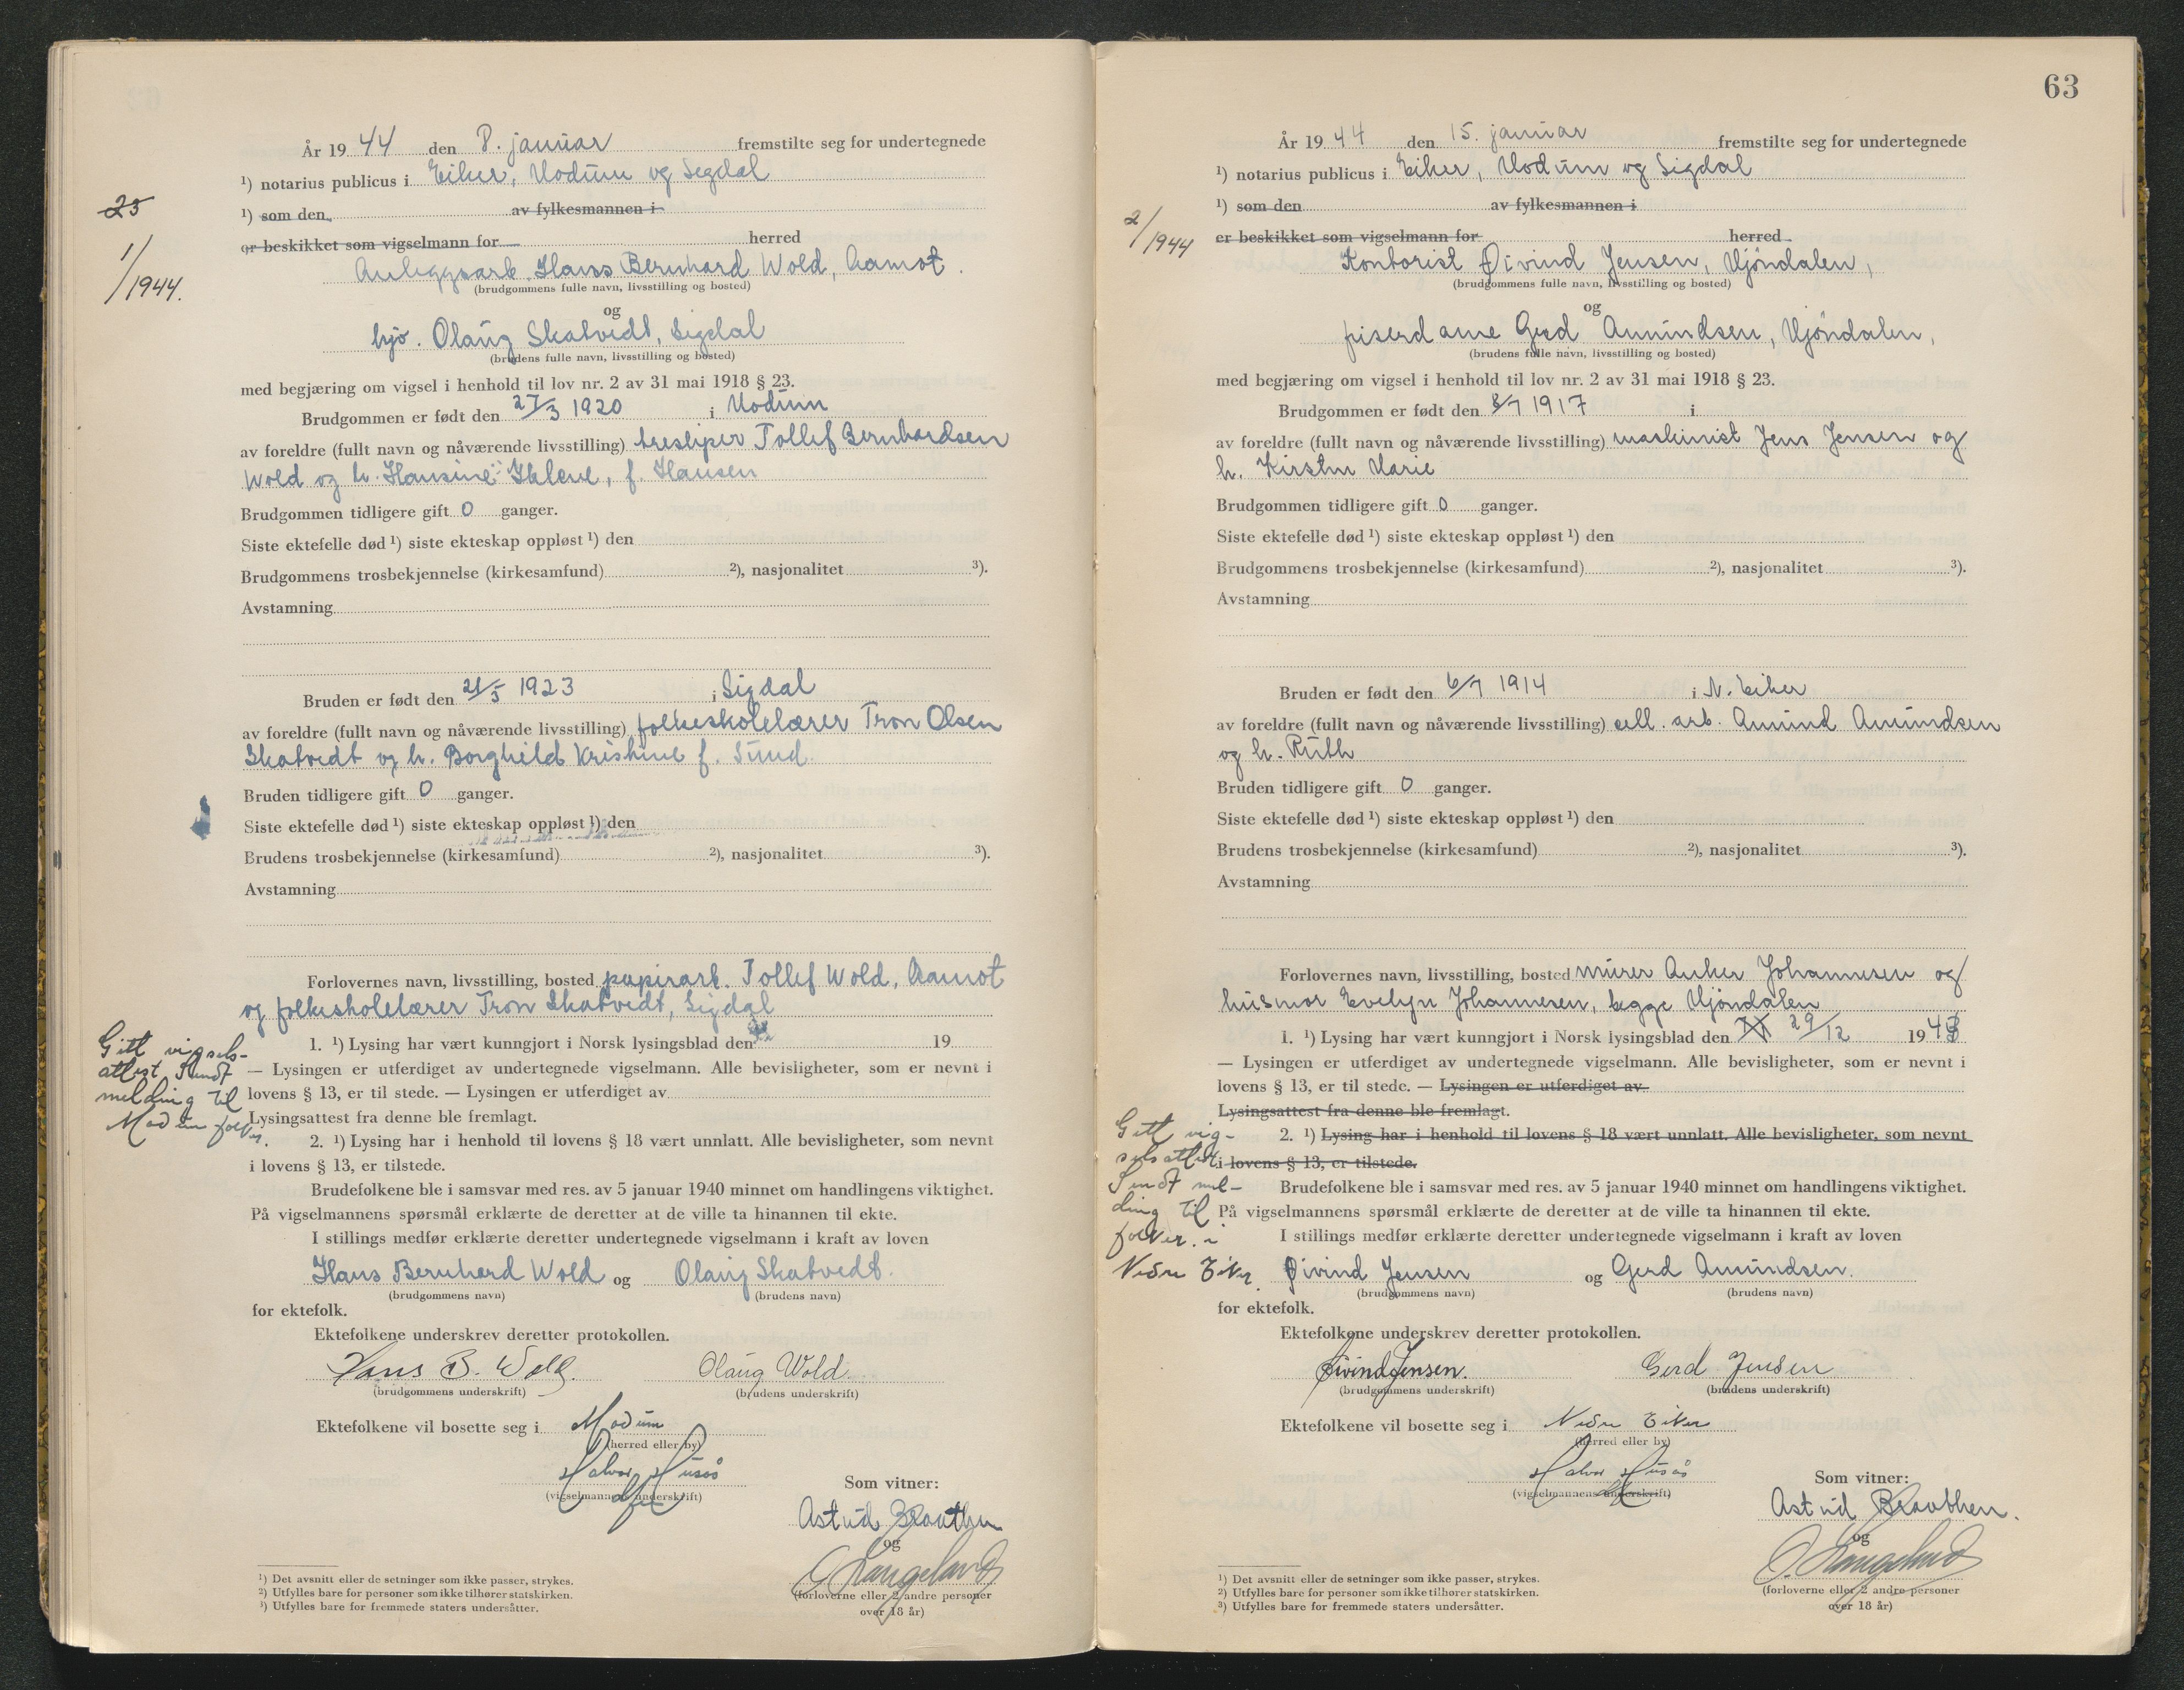 År 1944 den 8. januar fremstilte seg for undertegnede
¹) notarius publicus i Eiker, Modum og Sigdal
¹) som den av fylkesmannen i
er beskikket som vigselmann for herred
25
1/1944.
Anleggsarb. Hans Bernhard Wold, Aamot.
(brudgommens fulle navn, livsstilling og bosted)
og
hjv. Olaug Skatvedt, Sigdal
(brudens fulle navn, livsstilling og bosted)
med begjæring om vigsel i henhold til lov nr. 2 av 31 mai 1918 § 23.
Brudgommen er født den 27/3 1920 i Modum
av foreldre (fullt navn og nåværende livsstilling) tresliper Tollef Bernhardsen
Wold og h. Hansine Helene, f. Hansen
Brudgommen tidligere gift 0 ganger.
Siste ektefelle død ¹) siste ekteskap oppløst ¹) den
Brudgommens trosbekjennelse (kirkesamfund) ²), nasjonalitet ³).
Avstamning
Bruden er født den 21/5 1923 i Sigdal
av foreldre (fullt navn og nåværende livsstilling) folkeskolelærer Tron Olsen
Skatvedt og h. Borghild Kristine f. Sund.
Bruden tidligere gift 0 ganger.
Siste ektefelle død ¹) siste ekteskap oppløst ¹) den
Brudens trosbekjennelse (kirkesamfund) ²), nasjonalitet ³).
Avstamning
Forlovernes navn, livsstilling, bosted papirarb. Tollef Wold, Aamot
og folkeskolelærer Tron Skatvedt, Sigdal
1. ¹) Lysing har vært kunngjort i Norsk lysingsblad den 19
— Lysingen er utferdiget av undertegnede vigselmann. Alle bevisligheter, som er nevnt i
lovens § 13, er til stede. — Lysingen er utferdiget av
Lysingsattest fra denne ble fremlagt.
Gitt vigsels-
attest, Sendt
melding til
Modum folker.
2. ¹) Lysing har i henhold til lovens § 18 vært unnlatt. Alle bevisligheter, som nevnt
i lovens § 13, er tilstede.
Brudefolkene ble i samsvar med res. av 5 januar 1940 minnet om handlingens viktighet.
På vigselmannens spørsmål erklærte de deretter at de ville ta hinannen til ekte.
I stillings medfør erklærte deretter undertegnede vigselmann i kraft av loven
Hans Bernhard Wold og Olaug Skatvedt.
(brudgommens navn) (brudens navn)
for ektefolk.
Ektefolkene underskrev deretter protokollen.
Hans B. Wold. Olaug Wold.
(brudgommens underskrift) (brudens underskrift)
Ektefolkene vil bosette seg i Modum
(herred eller by)
Halvor Husås
(vigselmannens underskrift)
Som vitner:
Astrid Brauthen
og
Langeland
(forloverne eller 2 andre personer
over 18 år)
¹) Det avsnitt eller de setninger som ikke passer, strykes.
²) Utfylles bare for personer som ikke tilhører statskirken.
³) Utfylles bare for fremmede staters undersåtter.
63
År 1944 den 15. januar fremstilte seg for undertegnede
¹) notarius publicus i Eiker, Modum og Sigdal
¹) som den av fylkesmannen i
er beskikket som vigselmann for herred
2/1944
Kontorist Øivind Jensen, Mjöndalen,
(brudgommens fulle navn, livsstilling og bosted)
og
friserdame Gerd Amundsen, Mjöndalen,
(brudens fulle navn, livsstilling og bosted)
med begjæring om vigsel i henhold til lov nr. 2 av 31 mai 1918 § 23.
Brudgommen er født den 8/7 1917 i
av foreldre (fullt navn og nåværende livsstilling) maskinist Jens Jensen og
h. Kirstin Marie
Brudgommen tidligere gift 0 ganger.
Siste ektefelle død ¹) siste ekteskap oppløst ¹) den
Brudgommens trosbekjennelse (kirkesamfund) ²), nasjonalitet ³).
Avstamning
Bruden er født den 6/7 1914 i N. Eiker
av foreldre (fullt navn og nåværende livsstilling) cell. arb. Amund Amundsen
og h. Ruth
Bruden tidligere gift 0 ganger.
Siste ektefelle død ¹) siste ekteskap oppløst ¹) den
Brudens trosbekjennelse (kirkesamfund) ²), nasjonalitet ³).
Avstamning
Forlovernes navn, livsstilling, bosted murer Anker Johannesen og
husmor Evelyn Johannesen, begge Mjöndalen
1. ¹) Lysing har vært kunngjort i Norsk lysingsblad den 29/12 1943
— Lysingen er utferdiget av undertegnede vigselmann. Alle bevisligheter, som er nevnt i
lovens § 13, er til stede. — Lysingen er utferdiget av
Lysingsattest fra denne ble fremlagt.
Gitt vig-
selsattest.
Sendt mel-
ding til
folker. i
Nedre Eiker.
2. ¹) Lysing har i henhold til lovens § 18 vært unnlatt. Alle bevisligheter, som nevnt
i lovens § 13, er tilstede.
Brudefolkene ble i samsvar med res. av 5 januar 1940 minnet om handlingens viktighet.
På vigselmannens spørsmål erklærte de deretter at de ville ta hinannen til ekte.
I stillings medfør erklærte deretter undertegnede vigselmann i kraft av loven
Øivind Jensen og Gerd Amundsen.
(brudgommens navn) (brudens navn)
for ektefolk.
Ektefolkene underskrev deretter protokollen.
Øivind Jensen. Gerd Jensen
(brudgommens underskrift) (brudens underskrift)
Ektefolkene vil bosette seg i Nedre Eiker
(herred eller by)
Halvor Husås
(vigselmannens underskrift)
Som vitner:
Astrid Brauthen.
og
Langeland
(forloverne eller 2 andre personer
over 18 år)
¹) Det avsnitt eller de setninger som ikke passer, strykes.
²) Utfylles bare for personer som ikke tilhører statskirken.
³) Utfylles bare for fremmede staters undersåtter.